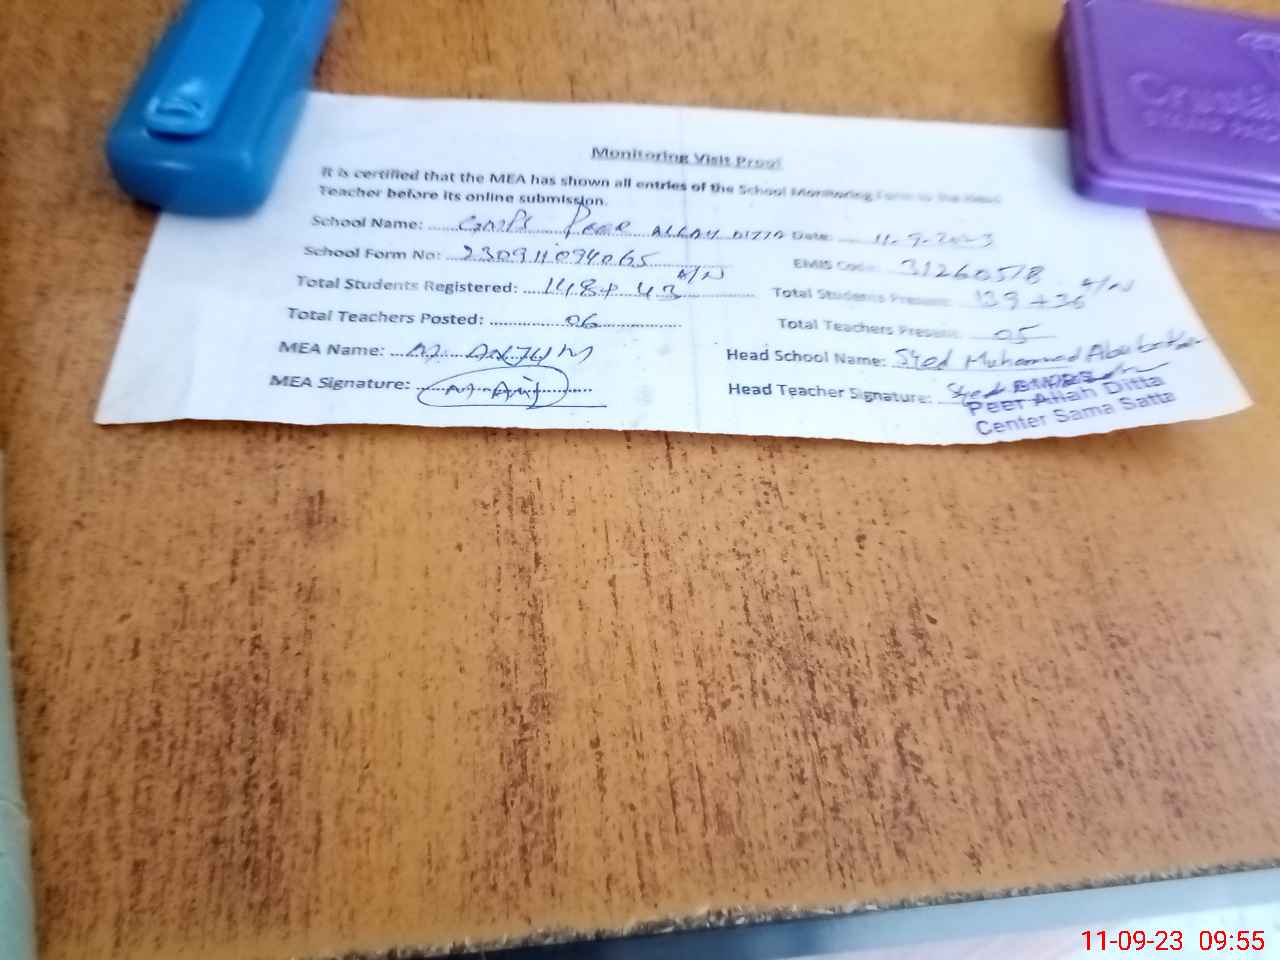 Monitoring Visit Proof
It is certified that the MEA has shown all entries of the School Monitoring Form to the Head
Teacher before its online submission.
School Name: GMPS Peer ALLAH DITTA Date: 11-9-2023
School Form No: 230911094065 EMIS Code: 31260518
Total Students Registered: 148+43 A/N Total Students Present: 139+36 A/N
Total Teachers Posted: 06 Total Teachers Present: 05
MEA Name: M. ANJUM Head School Name: Syed Muhammad Abubakar
MEA Signature: Head Teacher Signature: Syed
Peer Allah Ditta
Center Sama Satta
Crystal
STAMP PAD
11-09-23 09:55